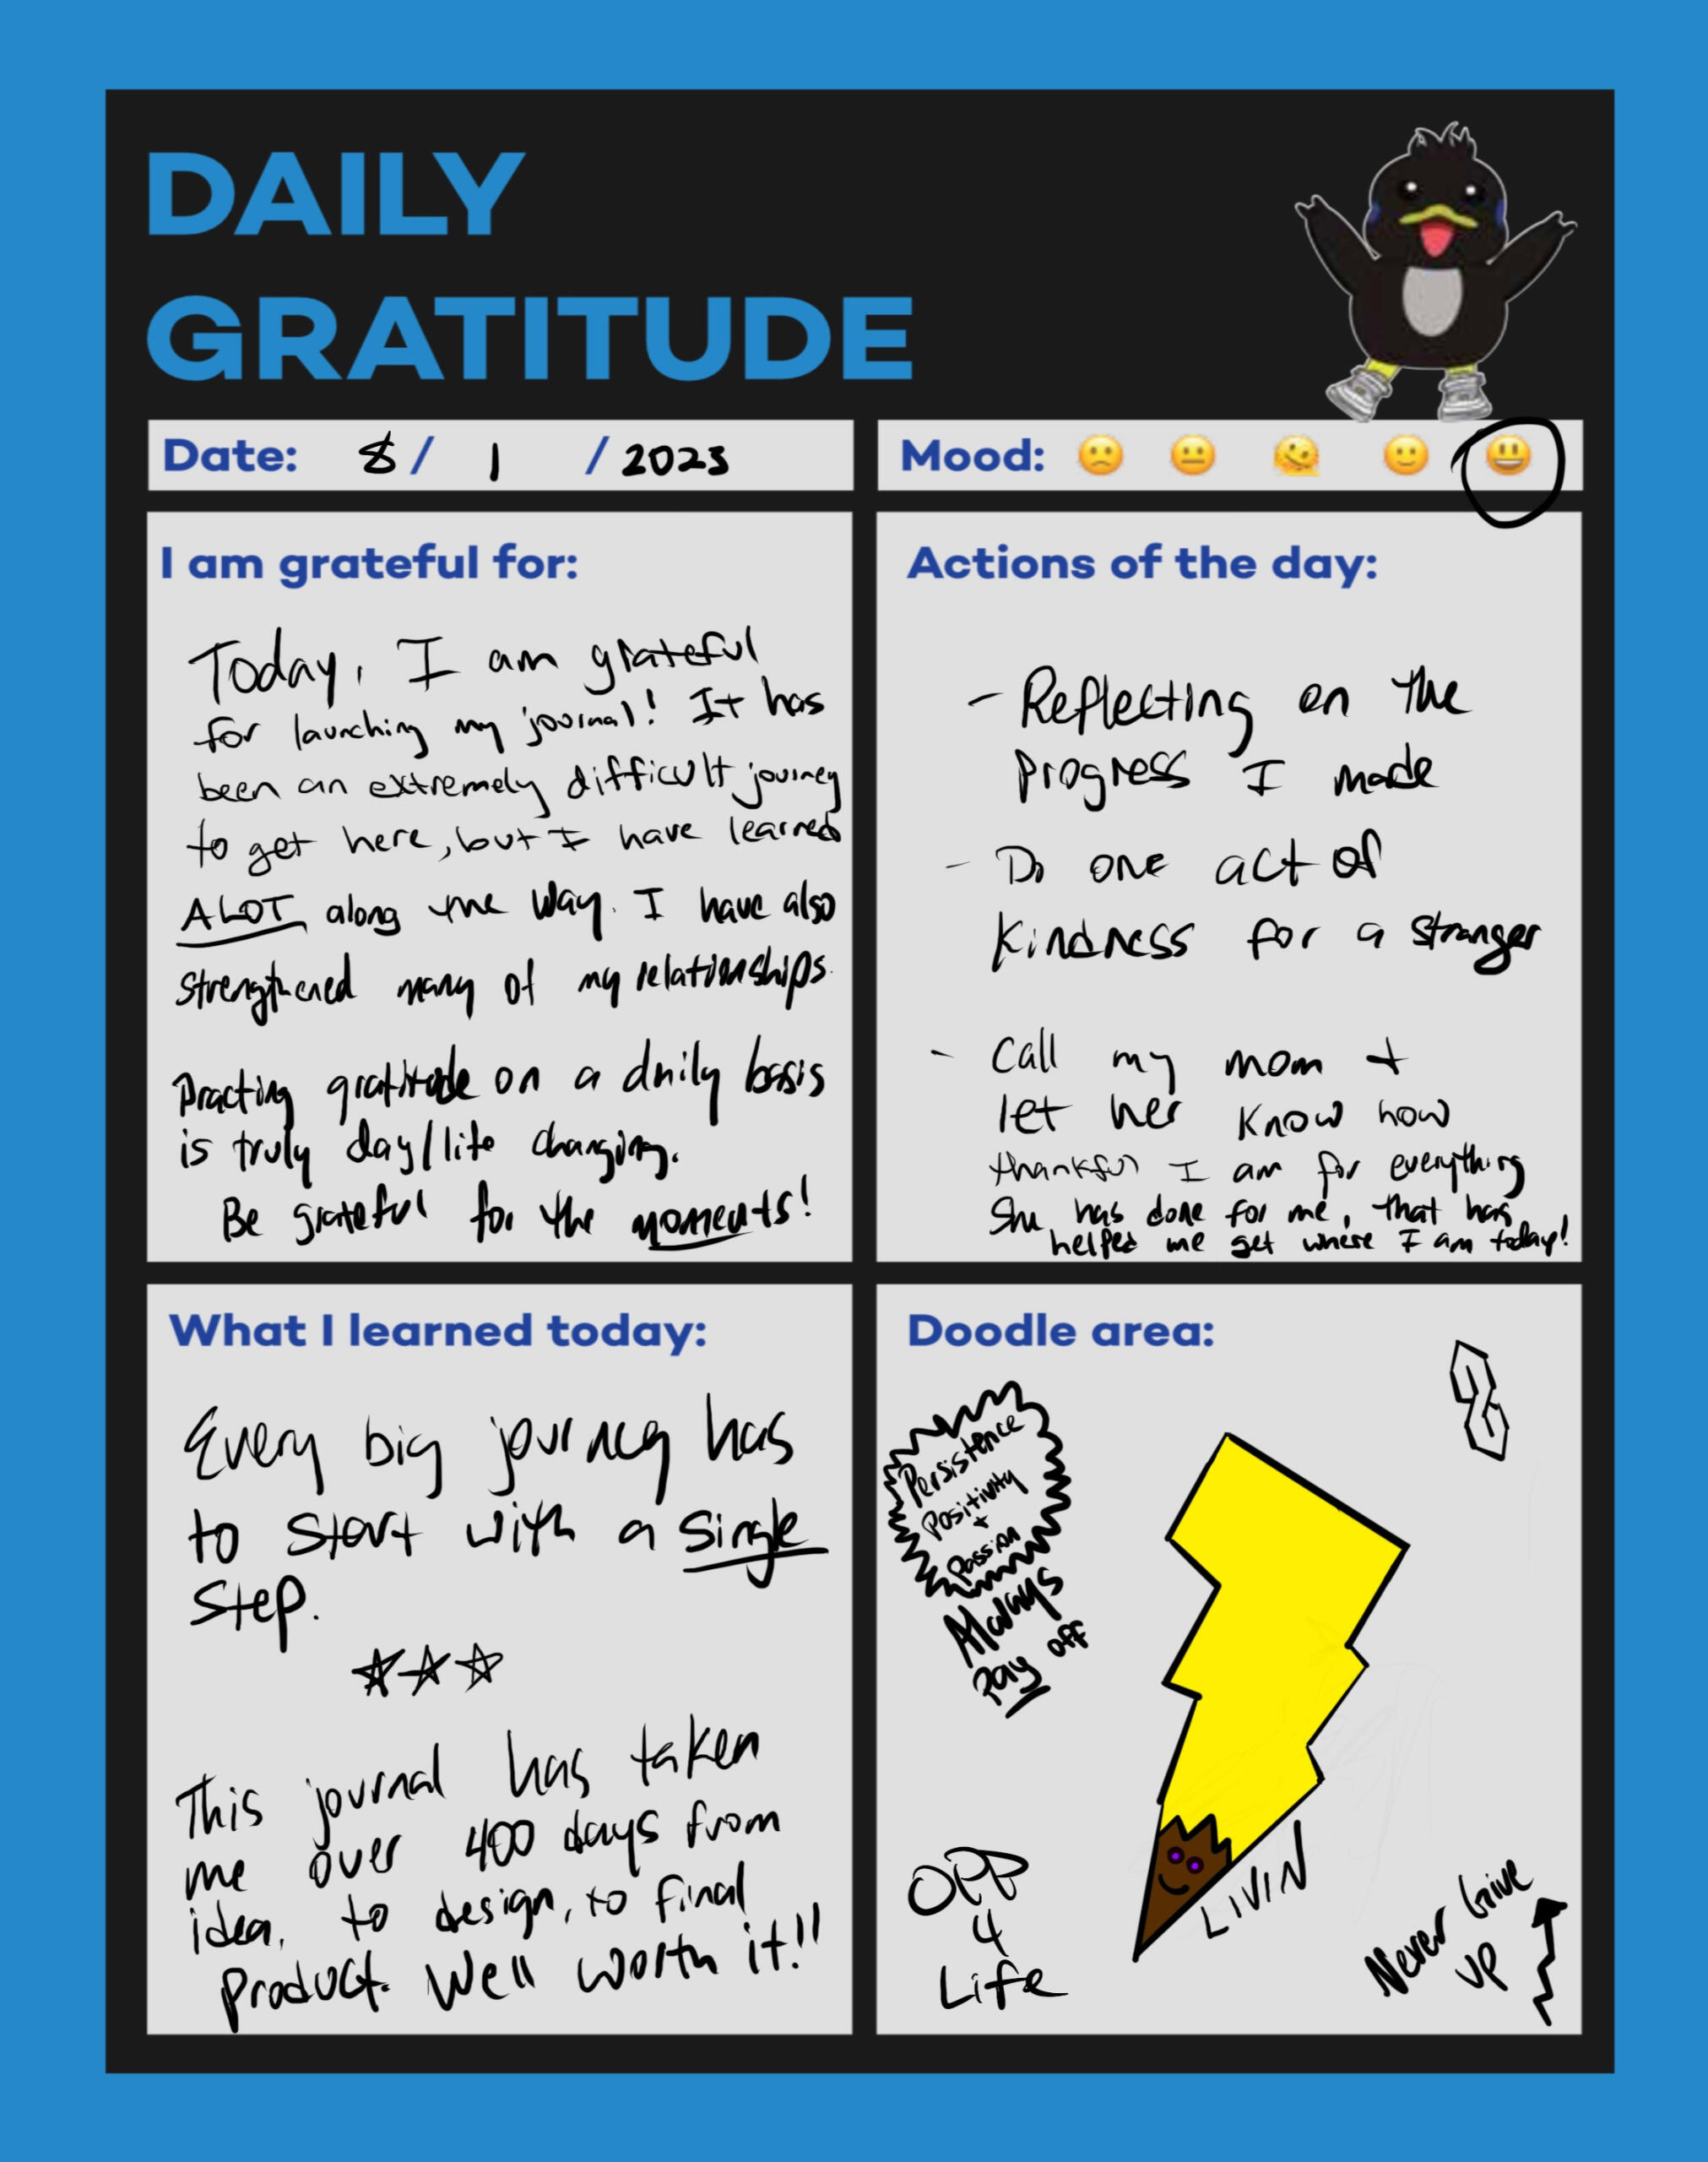 DAILY
GRATITUDE
Date: 8 / 1 / 2023
Mood:
I am grateful for:
Today, I am grateful
for launching my journal! It has
been an extremely difficult journey
to get here, but I have learned
ALOT along the way. I have also
strengthened many of my relationships.
Practing gratitude on a daily basis
is truly day/life changing.
Be grateful for the moments!
Actions of the day:
- Reflecting on the
progress I made
- Do one act of
kindness for a stranger
- Call my mom +
let her know how
thankful I am for everything
She has done for me, that has
helped me get where I am today!
What I learned today:
Every big journey has
to start with a single
step.
This journal has taken
me over 400 days from
idea, to design, to final
product. Well worth it!!
Doodle area:
Persistence
Positivity
+
Passion
Always
Pay off
OPP
4
Life
LIVIN
Never Give
UP